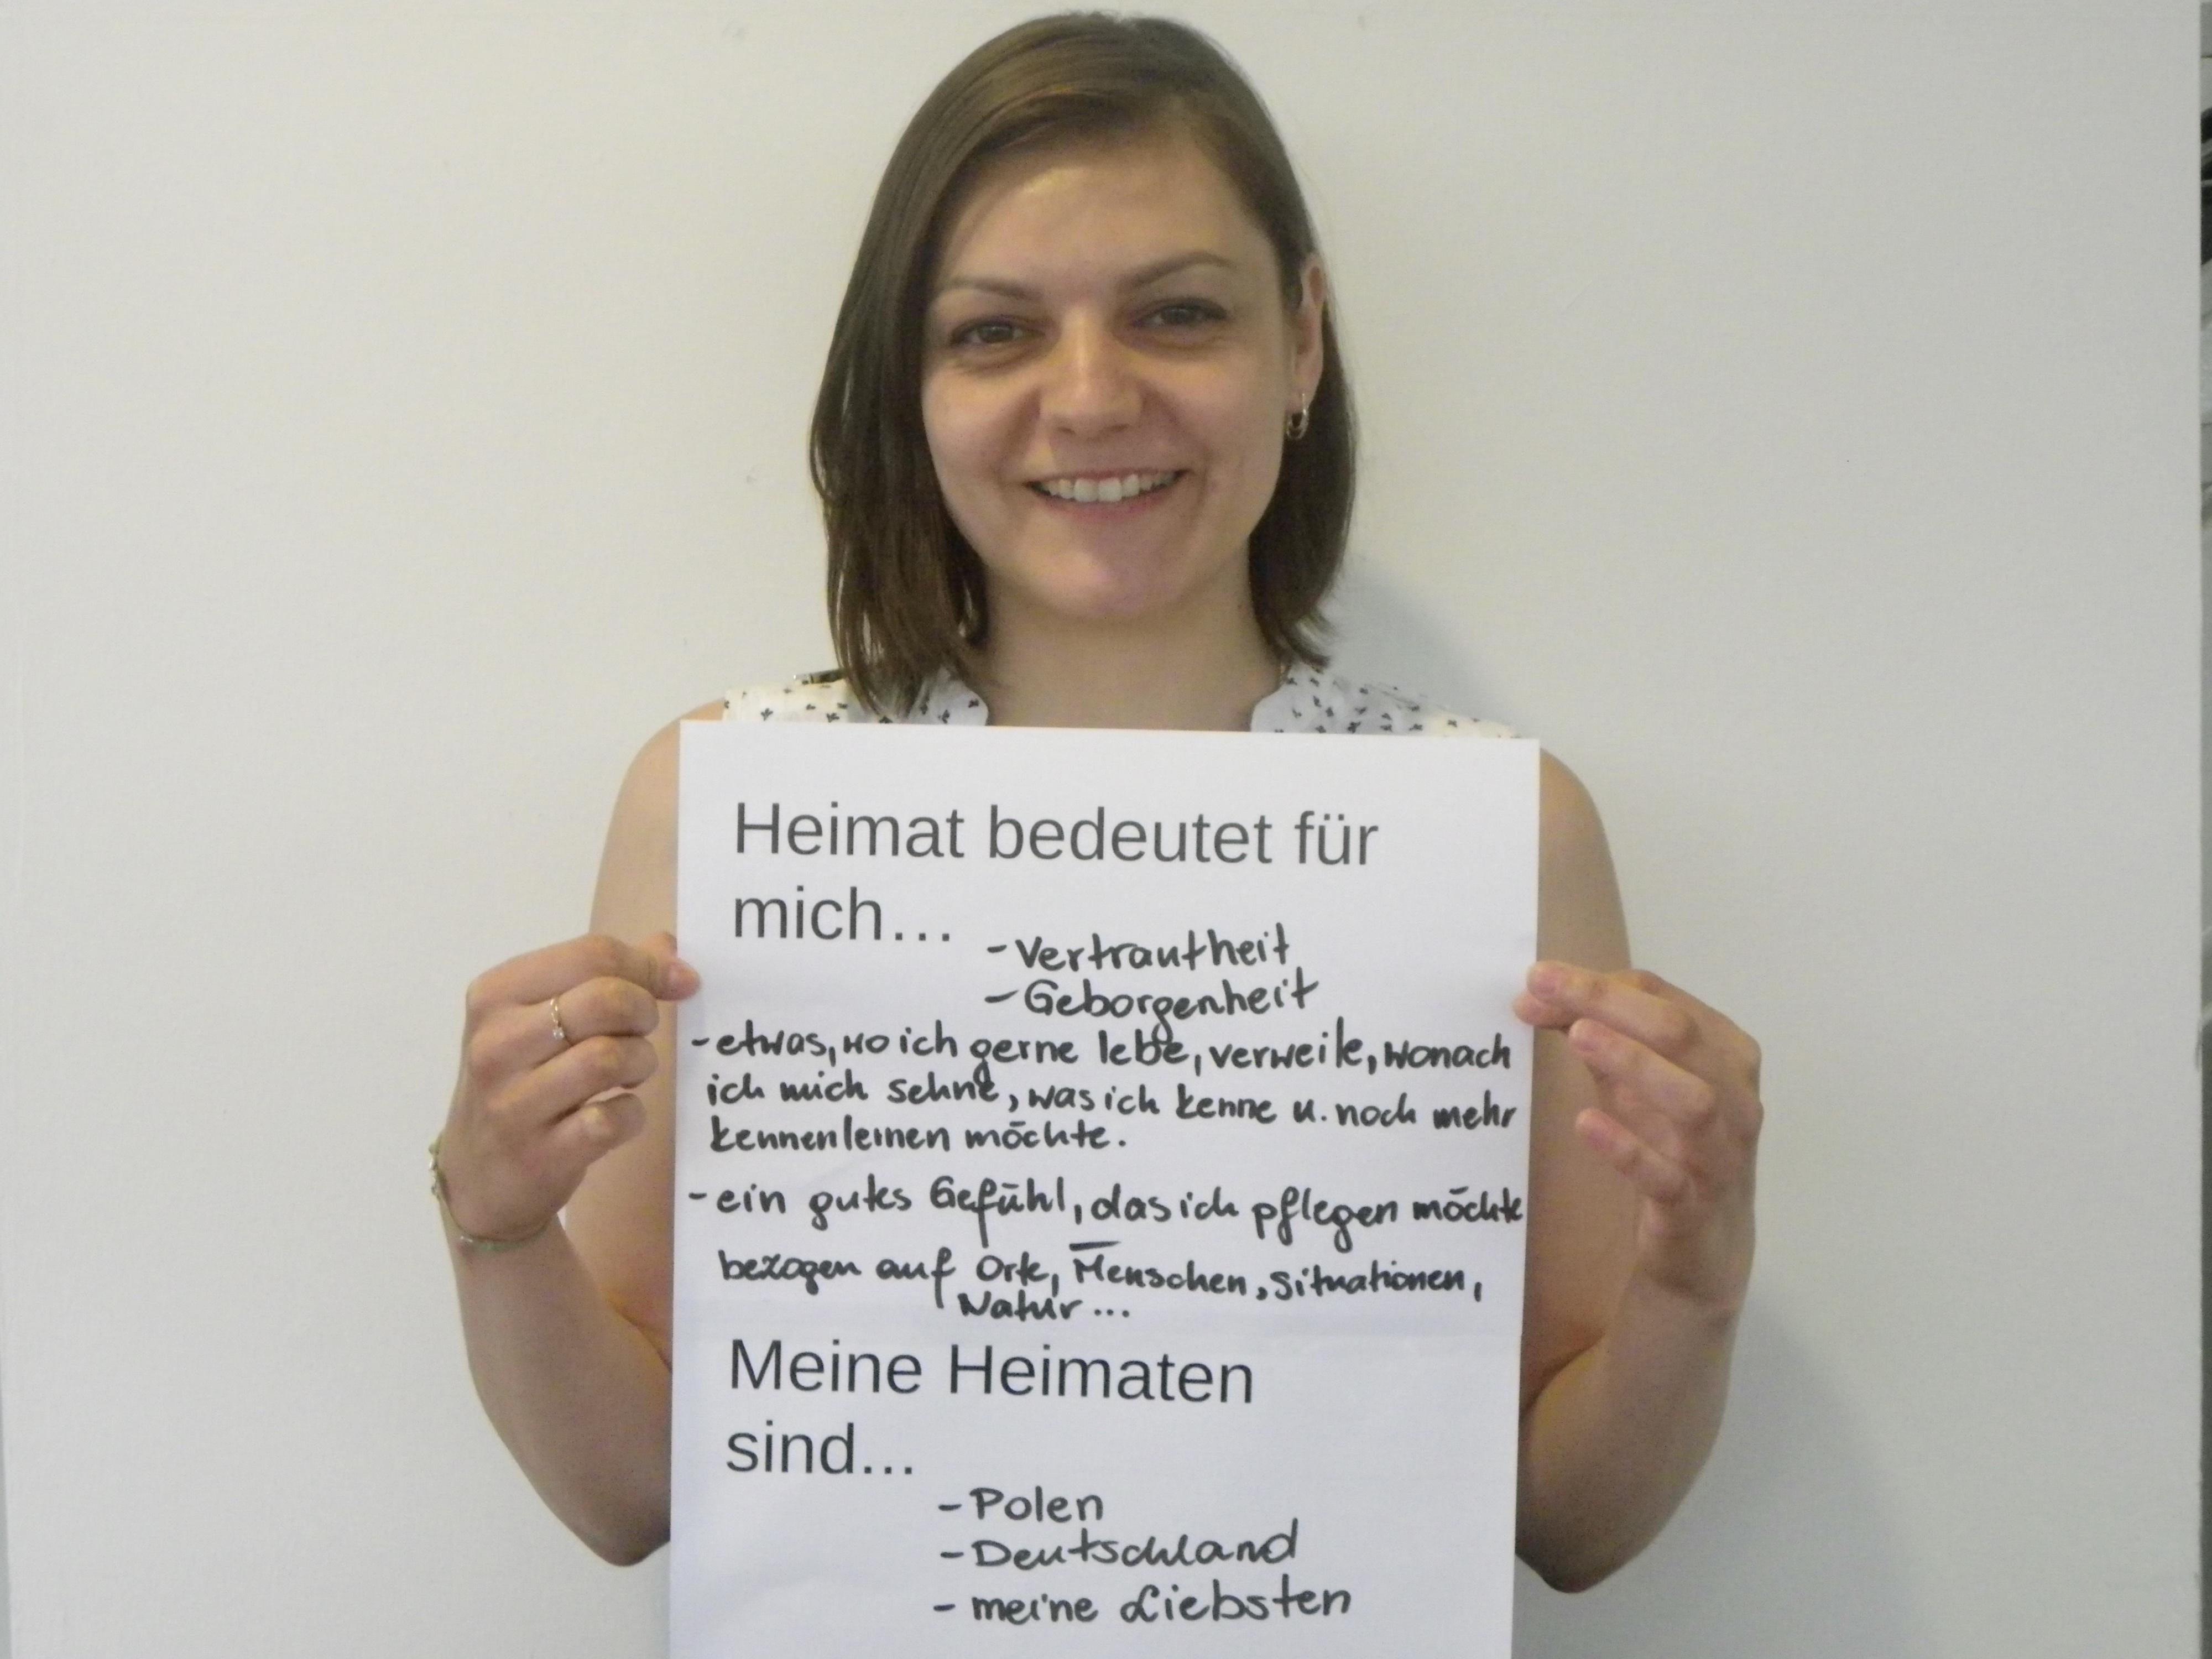 Heimat bedeutet für
mich...
- Vertrautheit
- Geborgenheit
- etwas, wo ich gerne lebe, verweile, wonach
ich mich sehne, was ich kenne u. noch mehr
kennenlernen möchte.
- ein gutes Gefühl, das ich pflegen möchte
bezogen auf Orte, Menschen, Situationen,
Natur...
Meine Heimaten
sind...
- Polen
- Deutschland
- meine Liebsten